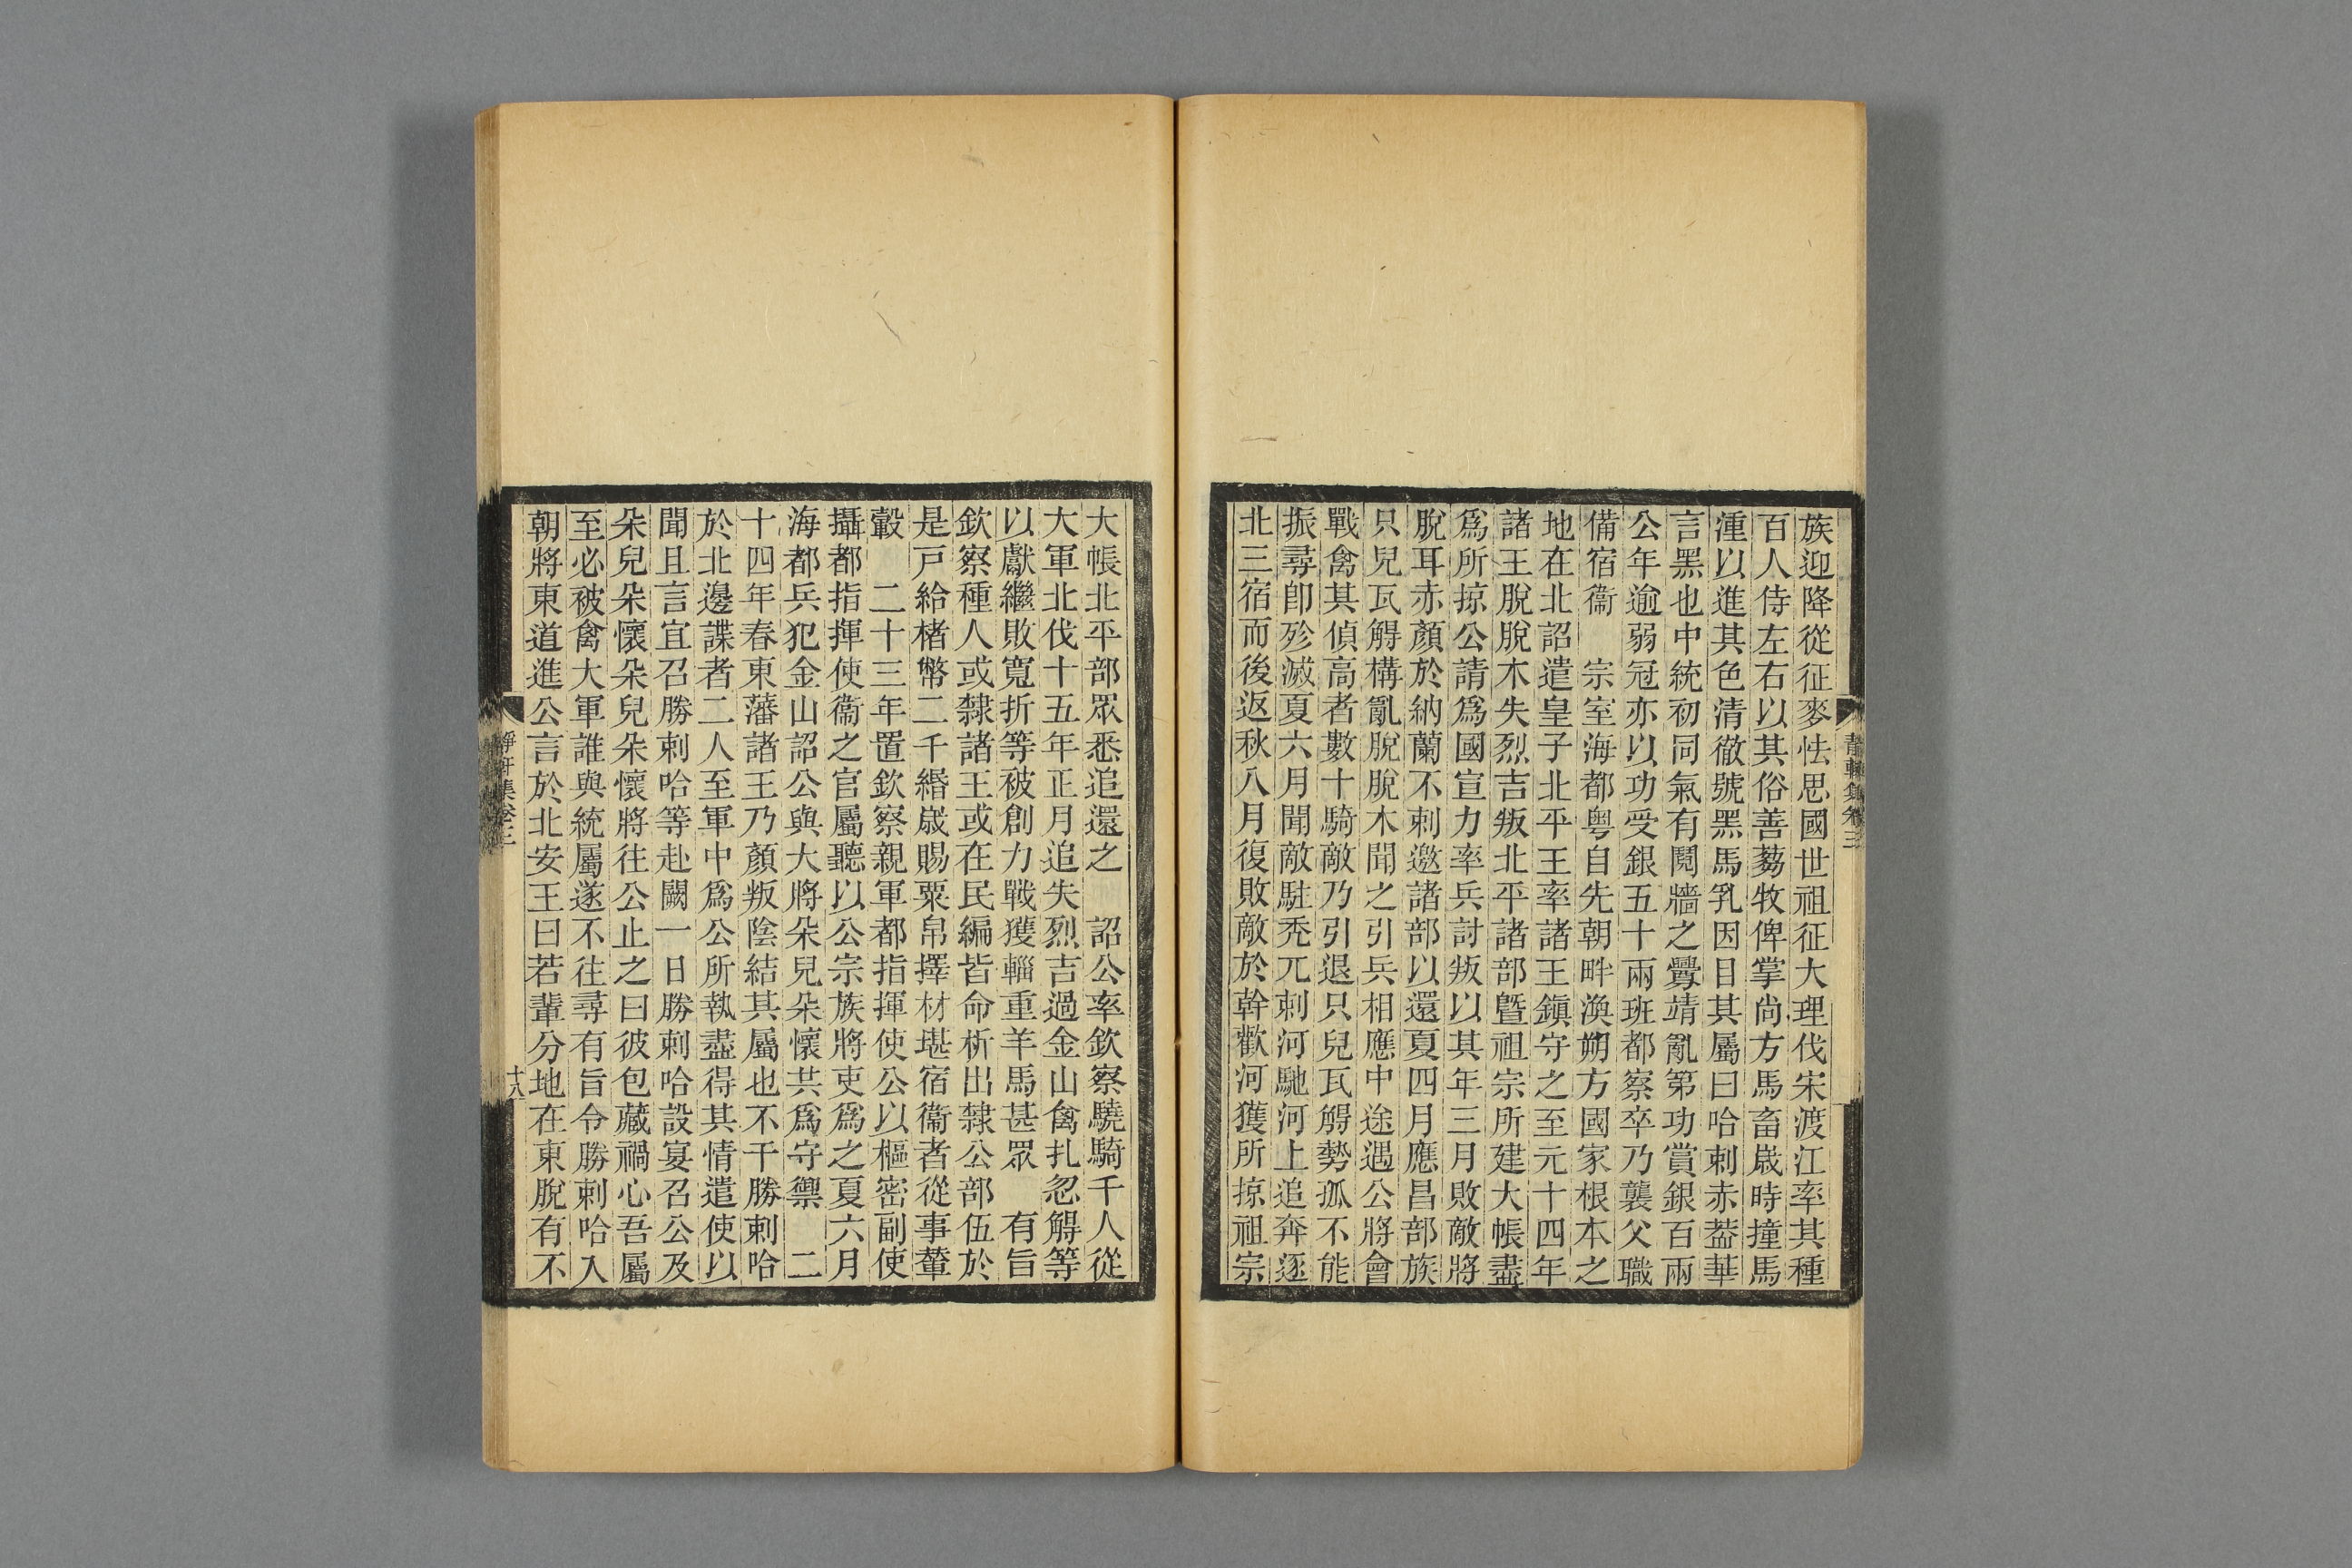 族迎降從征麥怯思國世祖征大理伐宋渡江率其種
百人侍左右以其俗善芻牧俾掌尚方馬畜歲時撞馬
湩以進其色清徹號黑馬乳因目其屬曰哈剌赤葢華
言黑也中統初同氣有鬩牆之釁靖亂第功賞銀百兩
公年逾弱冠亦以功受銀五十兩班都察卒乃襲父職
備宿衞　宗室海都粤自先朝畔渙朔方國家根本之
地在北詔遣皇子北平王率諸王鎭守之至元十四年
諸王脫脫木失烈吉叛北平諸部曁祖宗所建大帳盡
爲所掠公請爲國宣力率兵討叛以其年三月敗敵將
脫耳赤顏於納蘭不剌邀諸部以還夏四月應昌部族
只兒瓦䚟構亂脫脫木聞之引兵相應中途遇公將會
戰禽其偵高者數十騎敵乃引退只兒瓦䚟勢孤不能
振尋卽殄滅夏六月聞敵駐禿兀剌河馳河上追奔逐
北三宿而後返秋八月復敗敵於斡歡河獲所掠祖宗
大帳北平部眾悉追還之　詔公率欽察驍騎千人從
大軍北伐十五年正月追失烈吉過金山禽扎忽䚟等
以獻繼敗寬折等被創力戰獲輜重羊馬甚眾　有旨
欽察種人或隸諸王或在民編皆命析出隸公部伍於
是戸給楮幣二千緡歲賜粟帛擇材堪宿衞者從事輦
轂　二十三年置欽察親軍都指揮使公以樞密副使
攝都指揮使衞之官屬聽以公宗族將吏爲之夏六月
海都兵犯金山詔公與大將朵兒朵懷共爲守禦　二
十四年春東藩諸王乃顏叛陰結其屬也不干勝剌哈
於北邊諜者二人至軍中爲公所執盡得其情遣使以
聞且言宜召勝剌哈等赴闕一日勝剌哈設宴召公及
朵兒朵懷朵兒朵懷將往公止之曰彼包藏禍心吾屬
至必被禽大軍誰與統屬遂不往尋有旨令勝剌哈入
朝將東道進公言於北安王曰若輩分地在東脫有不
靜軒集卷三
十八